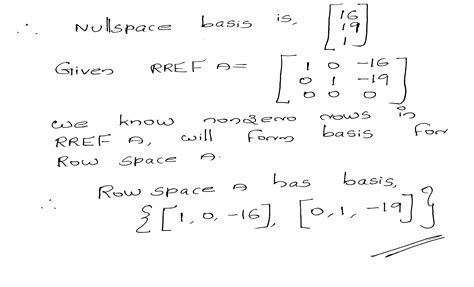 ∴ Nullspace basis is, [16
19
1]
Given RREF A= [1 0 -16
0 1 -19
0 0 0]
we know nonzero rows in
RREF A, will form basis for
Row space A.
∴ Row space A has basis,
{[1, 0, -16], [0, 1, -19]}